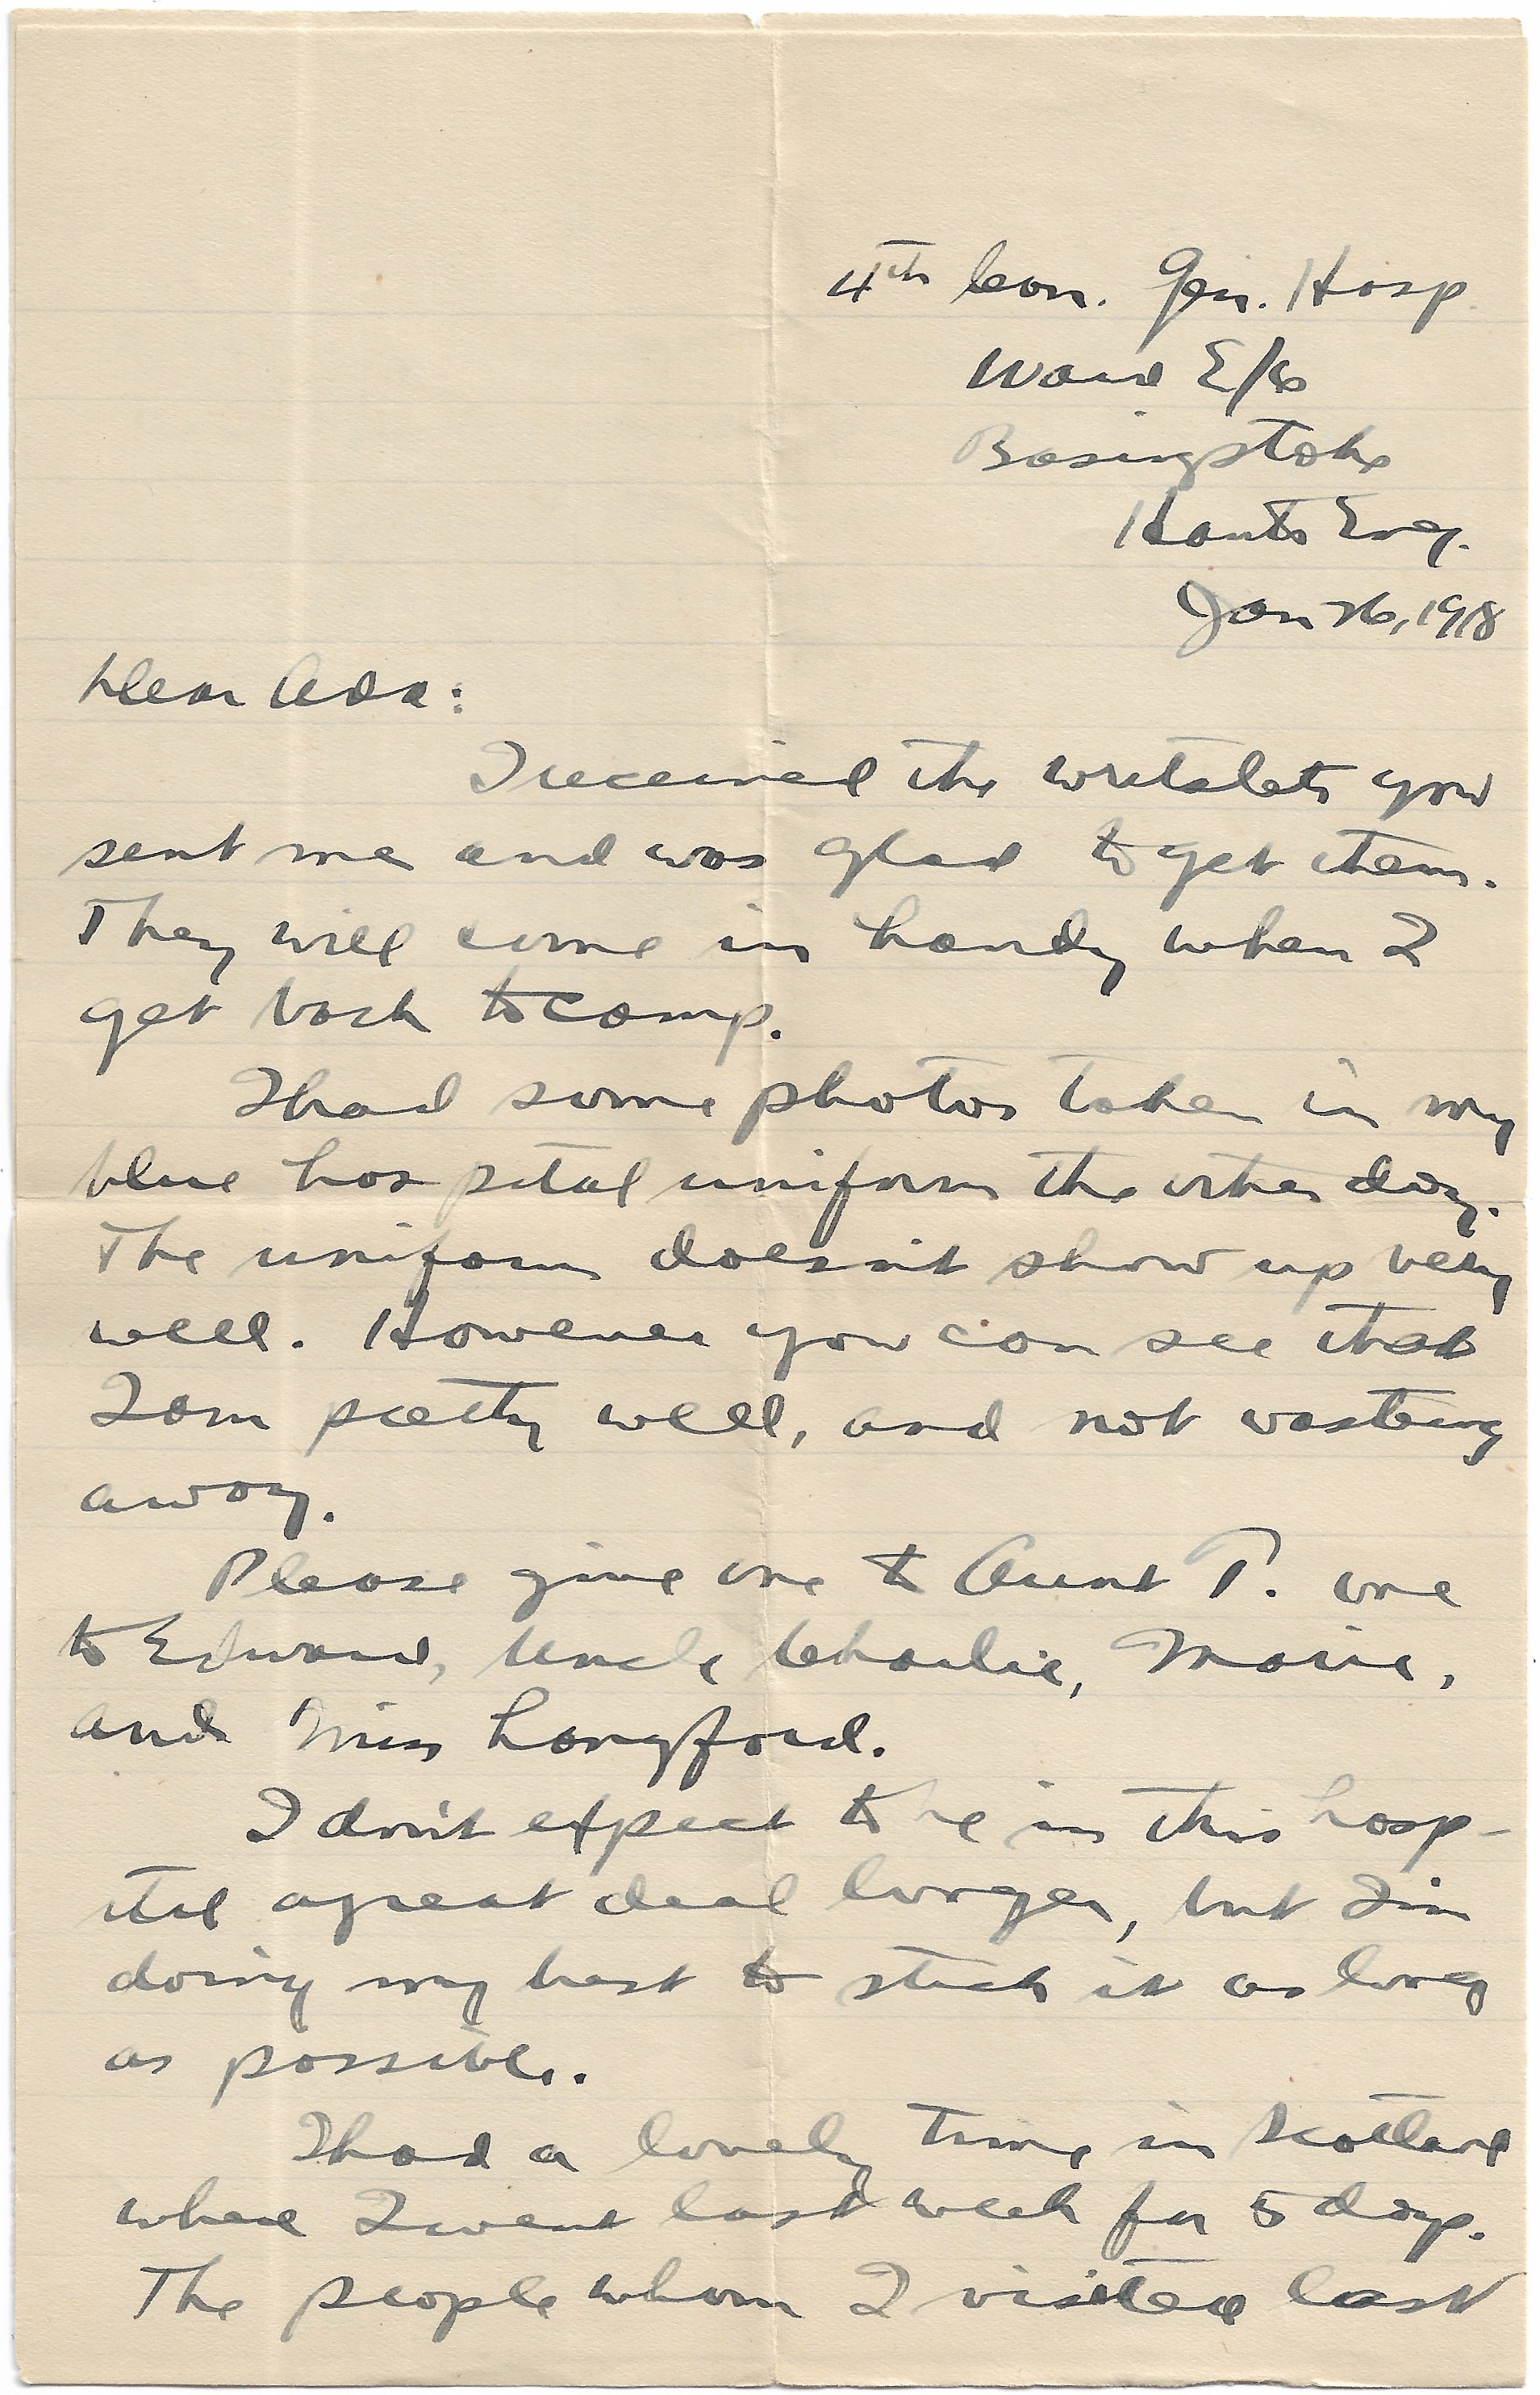 4th Can. Gen. Hosp.
Ward E/6
Basingstoke
Hants Eng.
Jan 26, 1918
Dear Ada:
I received the writslets you
sent me and was glad to get them.
They will come in handy when I
get back to camp.
I had some photos taken in my
blue hospital uniform the other day.
The uniform doesn't show up very
well. However you can see that
I am pretty well, and not wasting
away.
Please give one to Aunt T. one
to Edward, Uncle Charlie, Marie,
and Miss Longford.
I don't expect to be in this hosp-
ital a great deal longer, but I'm
doing my best to stick it as long
as possible.
I had a lovely time in Scotland
where I went last week for 5 days.
The people whom I visited last